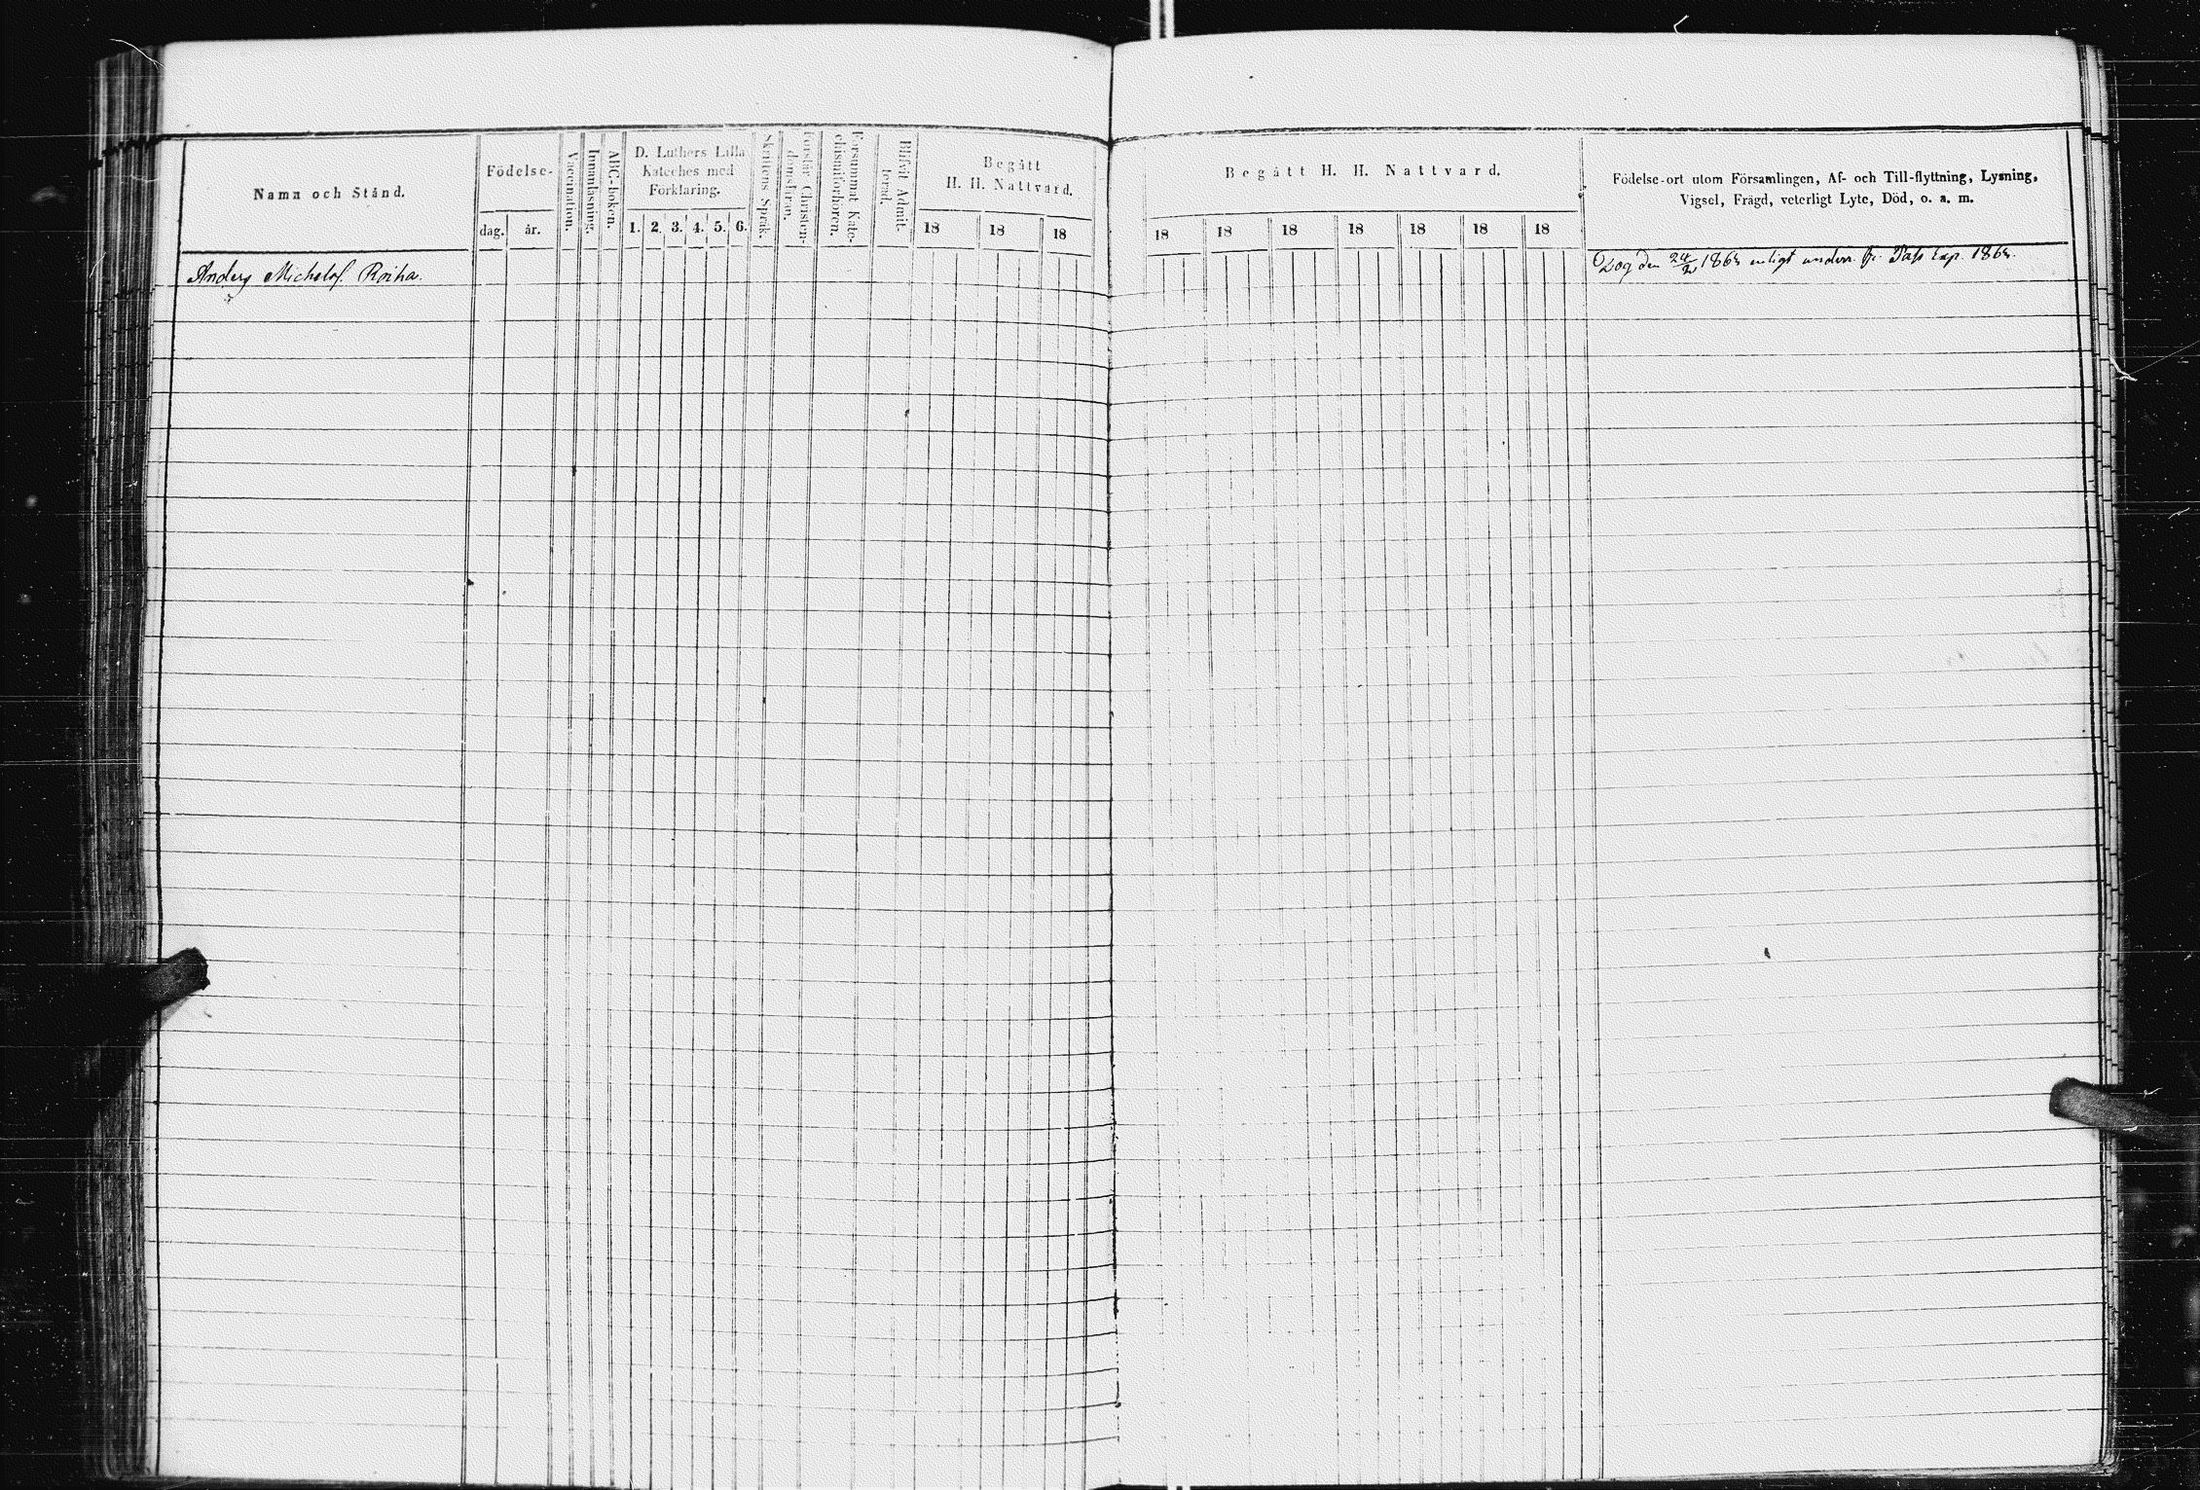 Namn och Stånd.
Födelse-
dag.
år.
Vaccination.
Innanläsning.
ABC-boken.
D. Luthers Lilla
Kateches med
Förklaring.
1. 2. 3. 4. 5. 6.
Skriftens Språk.
Förstår Christen-
domsläran.
Försummat Kate-
chismiförhören.
Blifvit Admit-
terad.
Begått
H. H. Nattvard.
18 18 18
Anders Michelsf. Roiha.
Begått H. H. Nattvard.
18 18 18 18 18 18 18
Födelse-ort utom Församlingen, Af- och Till-flyttning, Lysning,
Vigsel, Frägd, veterligt Lyte, Död, o. a. m.
Dog den 24/2 186 enligt underr. fr. Pass Exp. 186